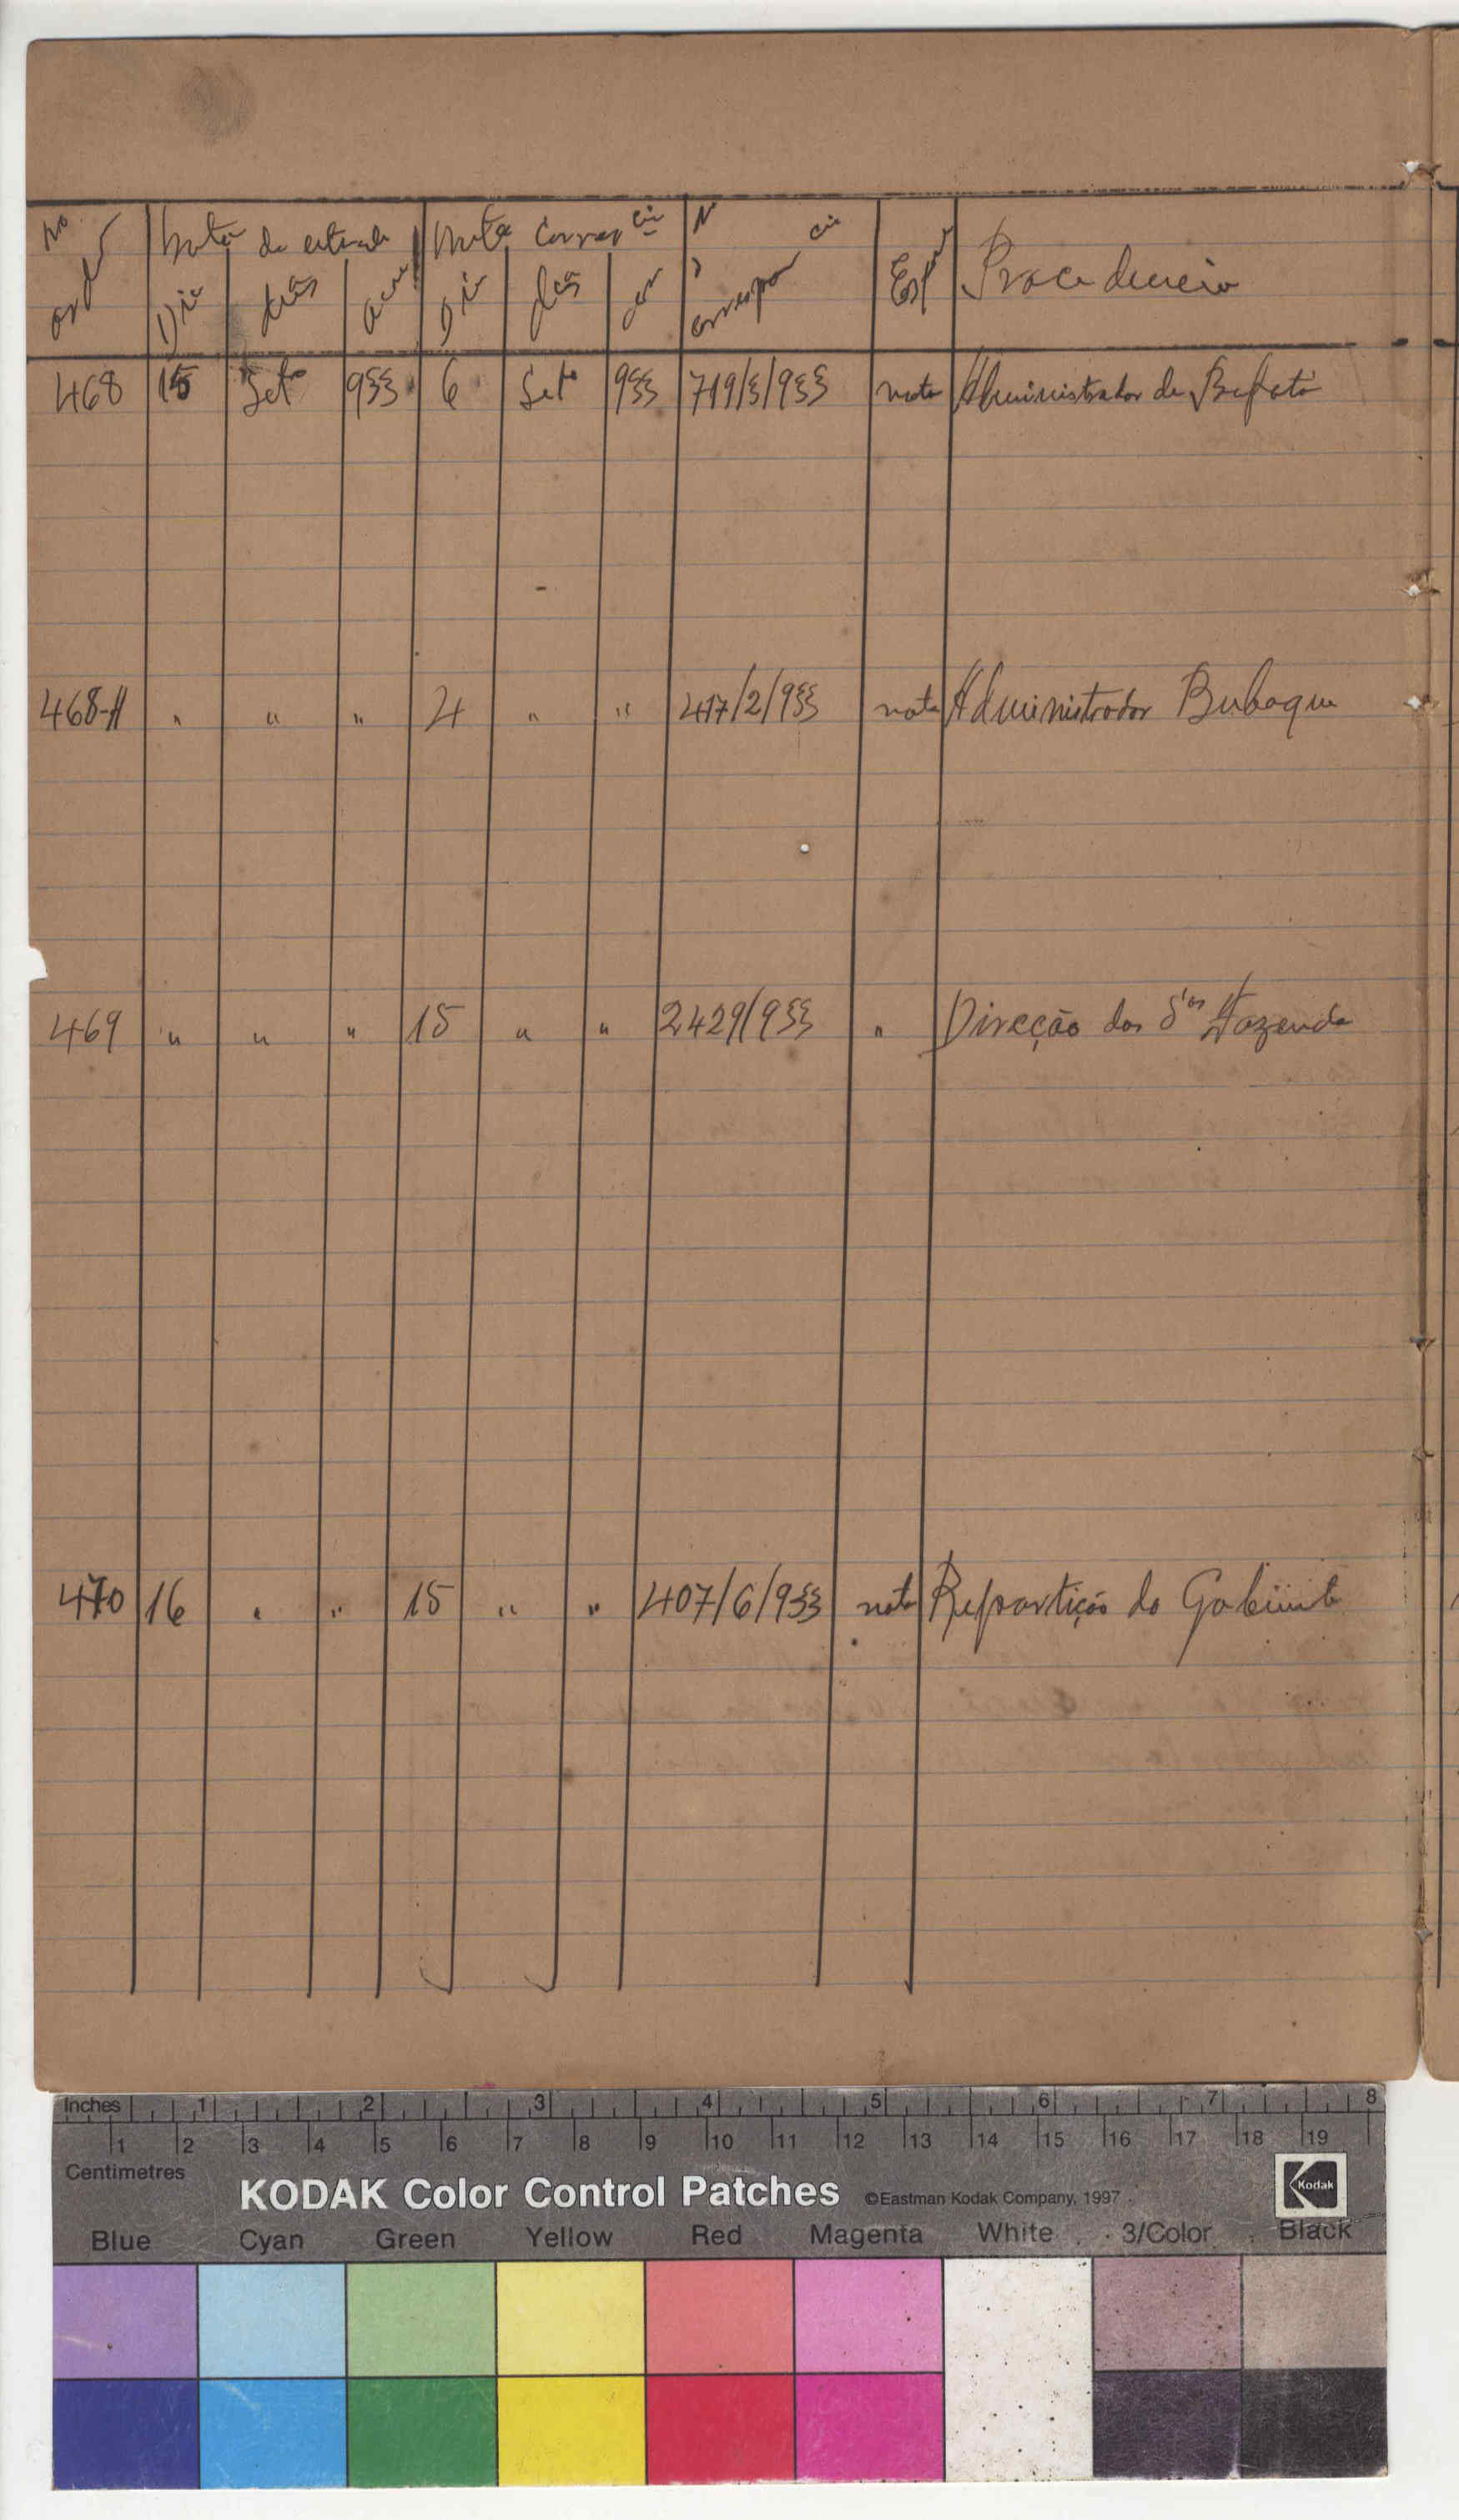 No ordem Data da entrada Data Corresp cia N Corresponcia Esp Procedencia
Dia Mês Ano Dia Mês An
468 15 Set. 933 6 Set. 933 719/3/933 nota Administrador de Bafatá
468-A " " " 4 " " 417/2/933 nota Administrador Bubaque
469 " " " 15 " " 2429/933 " Direcção dos S.os Fazenda
470 16 " " 15 " " 407/6/933 nota Repartição do Gabinete
Inches 1 2 3 4 5 6 7 8
1 2 3 4 5 6 7 8 9 10 11 12 13 14 15 16 17 18 19
Centimetres
KODAK Color Control Patches ©Eastman Kodak Company, 1997 Kodak
Blue Cyan Green Yellow Red Magenta White 3/Color Black